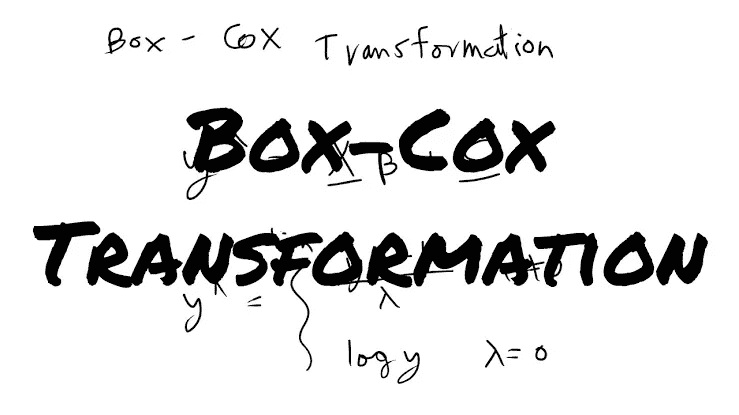 Box - Cox Transformation
BOX-COX
y X β
TRANSFORMATION
y^λ = λ
log y λ = 0